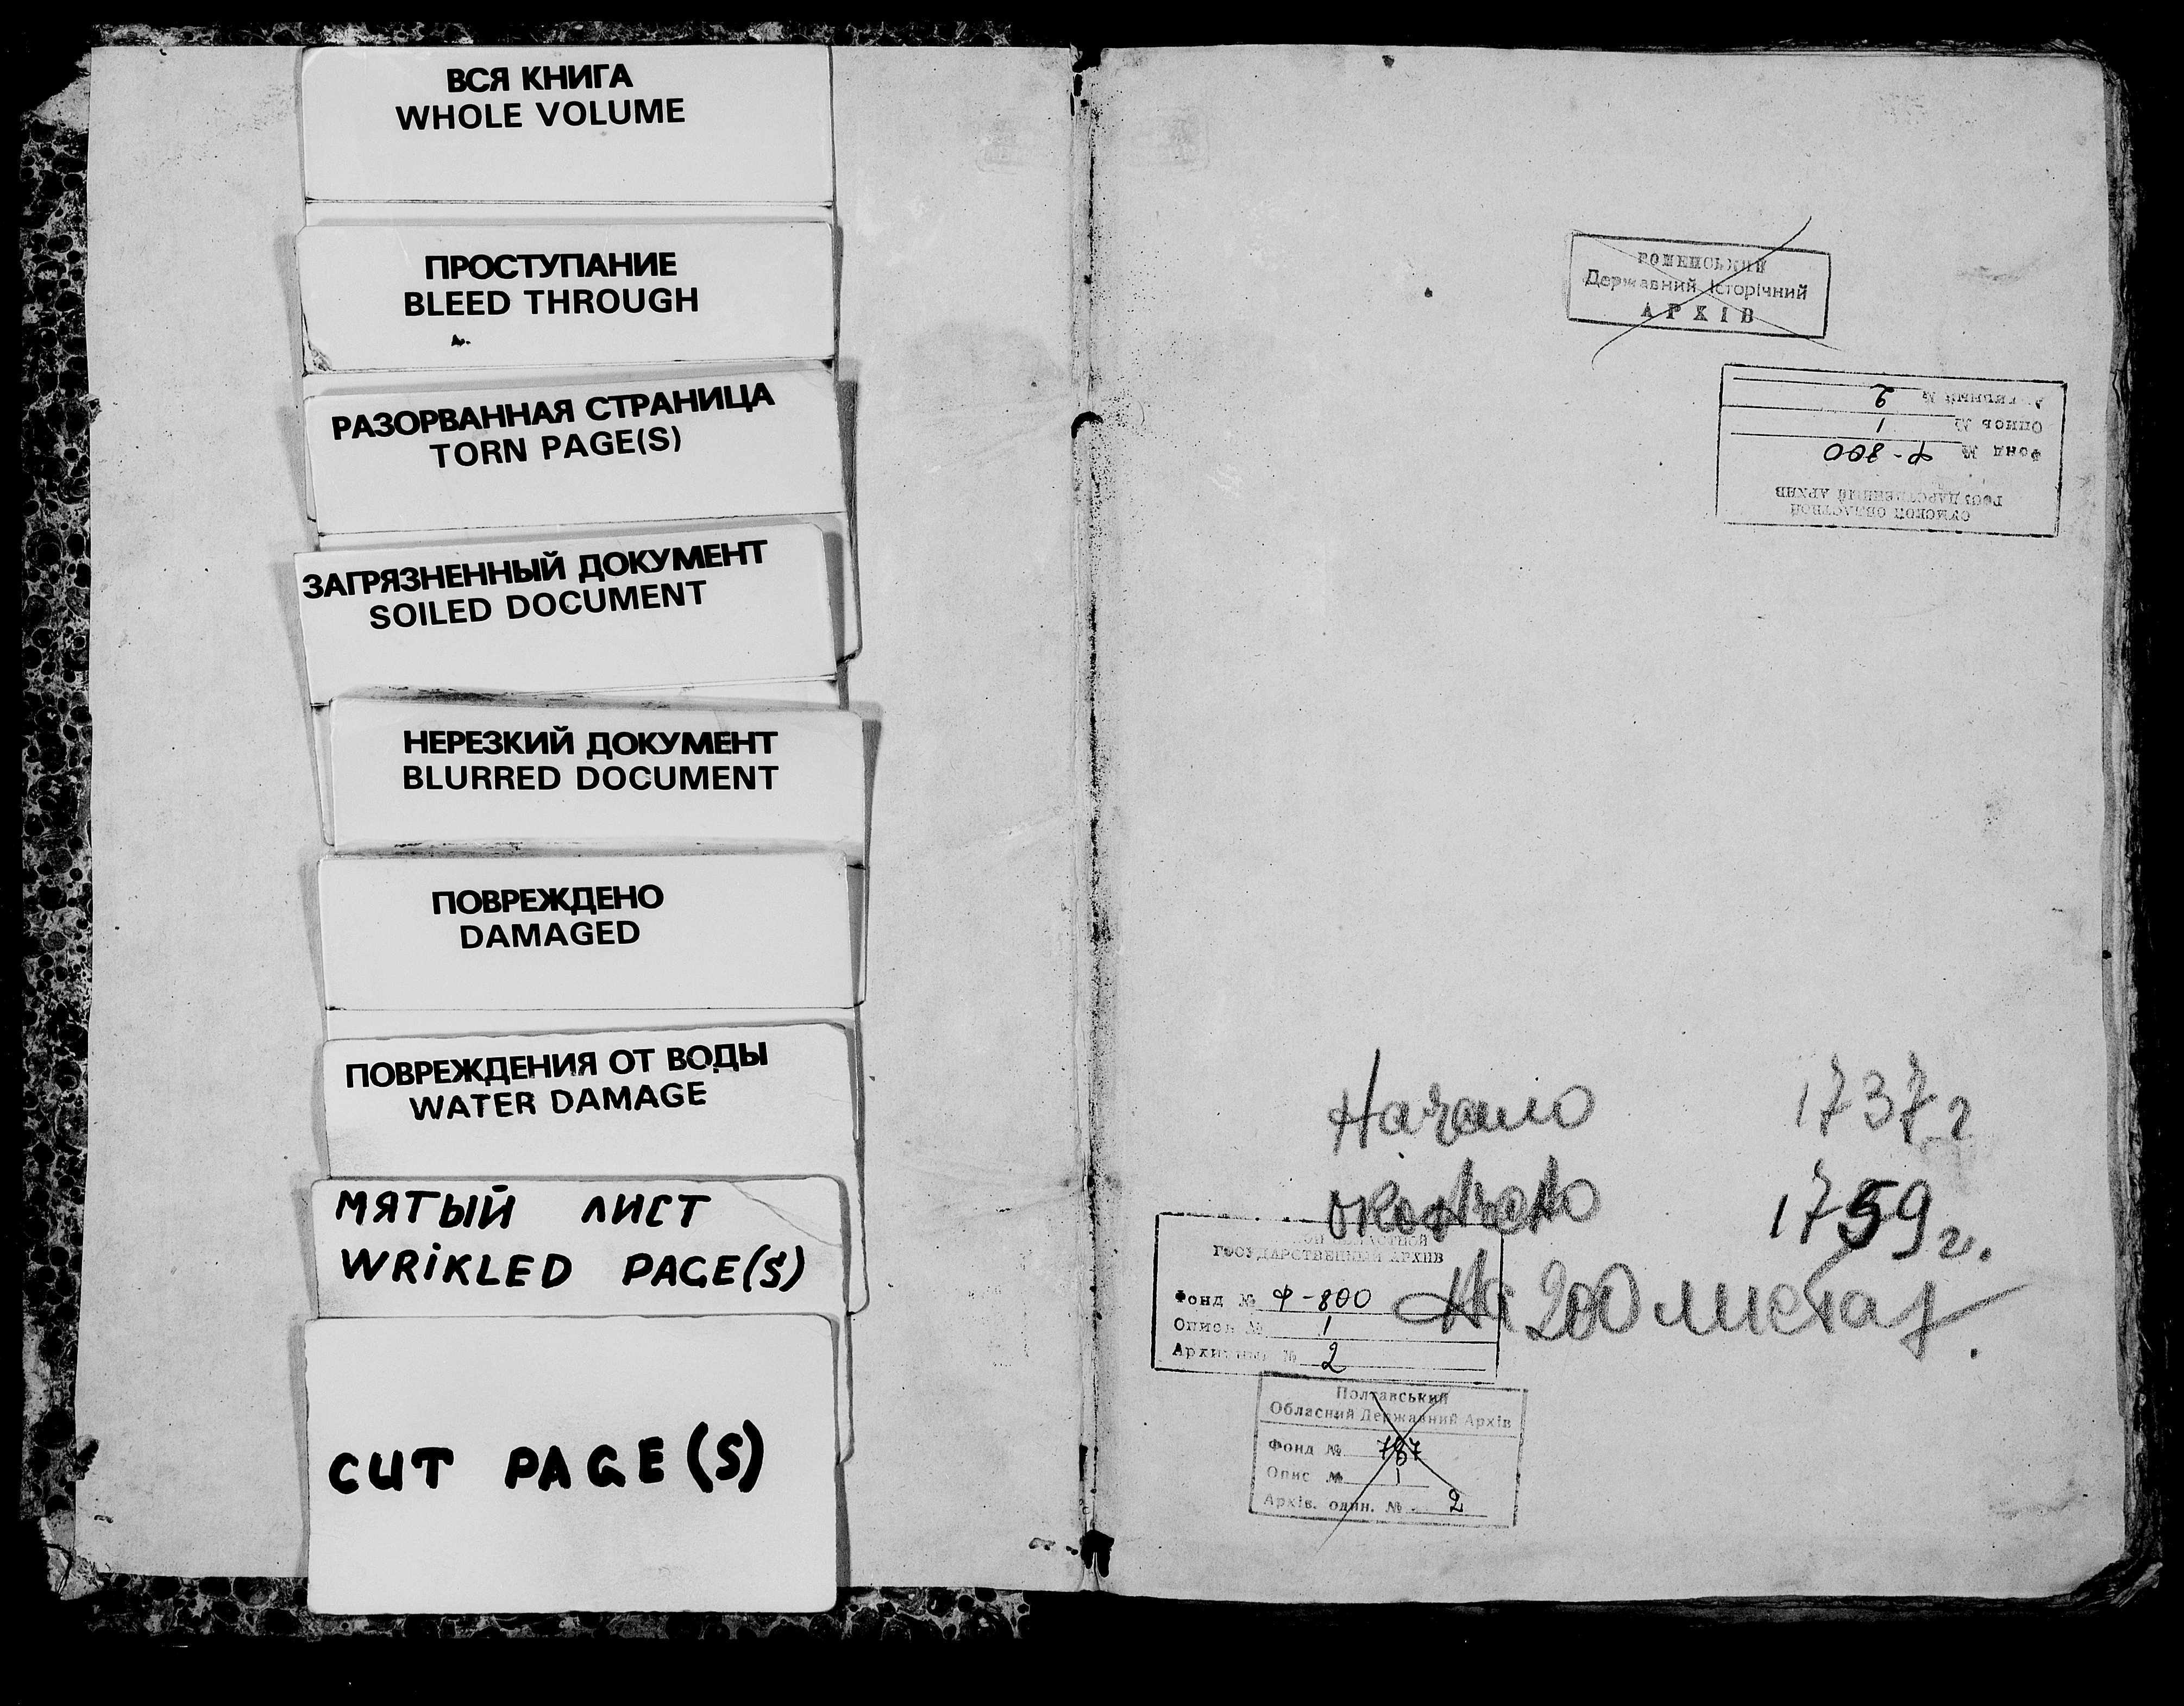 ВСЯ КНИГА
WHOLE VOLUME
ПРОСТУПАНИЕ
BLEED THROUGH
РАЗОРВАННАЯ СТРАНИЦА
TORN PAGE(S)
ЗАГРЯЗНЕННЫЙ ДОКУМЕНТ
SOILED DOCUMENT
НЕРЕЗКИЙ ДОКУМЕНТ
BLURRED DOCUMENT
ПОВРЕЖДЕНО
DAMAGED
ПОВРЕЖДЕНИЯ ОТ ВОДЫ
WATER DAMAGE
МЯТЫЙ ЛИСТ
WRIKLED PAGE(S)
CUT PAGE(S)
РОМЕНСЬКИЙ
Державний історічний
АРХІВ
СУМСКОЙ ОБЛАСТНОЙ
ГОСУДАРСТВЕННЫЙ АРХИВ
Фонд № Ф-800
Опись № 1
№ 2
Начало 1737 г
1759 г.
На 200 листах
ОБЛАСТНОЙ
ГОСУДАРСТВЕННЫЙ АРХИВ
Фонд № Ф-800
Опись № 1
Архивный № 2
Полтавський
Обласний Державний Архів
Фонд №
Опис № 1
Архів. один. № 2